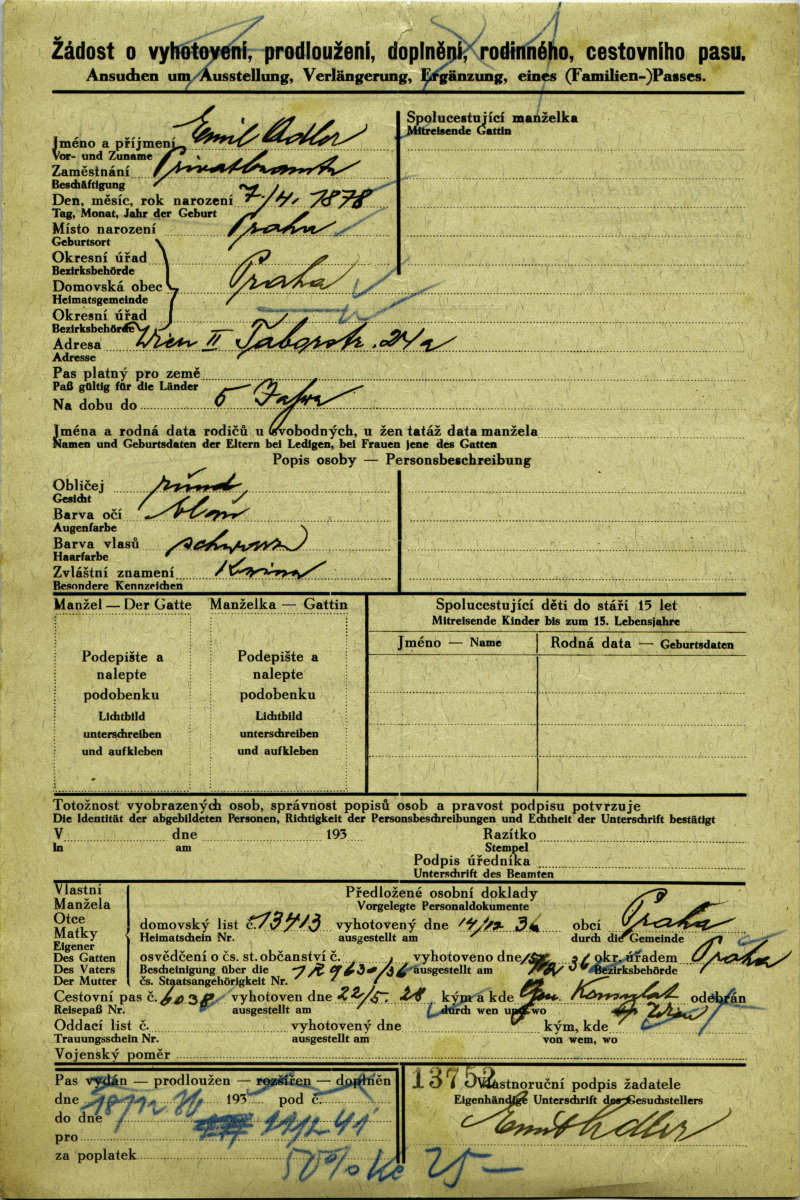 Žádost o vyhotovení, prodloužení, doplnění, rodinného, cestovního pasu.
Ansuchen um Ausstellung, Verlängerung, Ergänzung, eines (Familien-)Passes.
Jméno a příjmení Emil Adler
Vor- und Zuname
Spolucestující manželka
Mitreisende Gattin
Zaměstnání Privatbeamter
Beschäftigung
Den, měsíc, rok narození 7./4. 1878
Tag, Monat, Jahr der Geburt
Místo narození Praha
Geburtsort
Okresní úřad
Bezirksbehörde
Domovská obec Praha
Heimatsgemeinde
Okresní úřad
Bezirksbehörde
Adresa Wien II Taborstr. 24a
Adresse
Pas platný pro země
Paß gültig für die Länder
Na dobu do 5 Jahre
Jména a rodná data rodičů u svobodných, u žen tatáž data manžela
Namen und Geburtsdaten der Eltern bei Ledigen, bei Frauen jene des Gatten
Popis osoby — Personsbeschreibung
Obličej rund
Gesicht
Barva očí blau
Augenfarbe
Barva vlasů schwarz
Haarfarbe
Zvláštní znamení Keine
Besondere Kennzeichen
Manžel — Der Gatte Manželka — Gattin
Podepište a
nalepte
podobenku
Lichtbild
unterschreiben
und aufkleben
Podepište a
nalepte
podobenku
Lichtbild
unterschreiben
und aufkleben
Spolucestující děti do stáří 15 let
Mitreisende Kinder bis zum 15. Lebensjahre
Jméno — Name Rodná data — Geburtsdaten
Totožnost vyobrazených osob, správnost popisů osob a pravost podpisu potvrzuje
Die Identität der abgebildeten Personen, Richtigkeit der Personsbeschreibungen und Echtheit der Unterschrift bestätigt
V dne 193 Razítko
In am Stempel
Podpis úředníka
Unterschrift des Beamten
Vlastní
Manžela
Otce
Matky
Eigener
Des Gatten
Des Vaters
Der Mutter
Předložené osobní doklady
Vorgelegte Personaldokumente
domovský list č. 13413 vyhotovený dne 14/12 36 obcí Praha
Heimatschein Nr. ausgestellt am durch die Gemeinde
osvědčení o čs. st. občanství č. vyhotoveno dne 15/12 36 okr. úřadem Praha
Bescheinigung über die 1R9630/36 ausgestellt am Bezirksbehörde
čs. Staatsangehörigkeit Nr.
Cestovní pas č. 6038 vyhotoven dne 22/5. 28 kým a kde Gen. Konsulat Wien odebrán
Reisepaß Nr. ausgestellt am durch wen und wo
Oddací list č. vyhotovený dne kým, kde
Trauungsschein Nr. ausgestellt am von wem, wo
Vojenský poměr
Pas vydán — prodloužen — rozšířen — doplněn
dne 18/12 36 193 pod č. 13752
do dne 11/12 41
pro
za poplatek 50% Kč 25 —
Vlastnoruční podpis žadatele
Eigenhändige Unterschrift des Gesuchstellers
Emil Adler